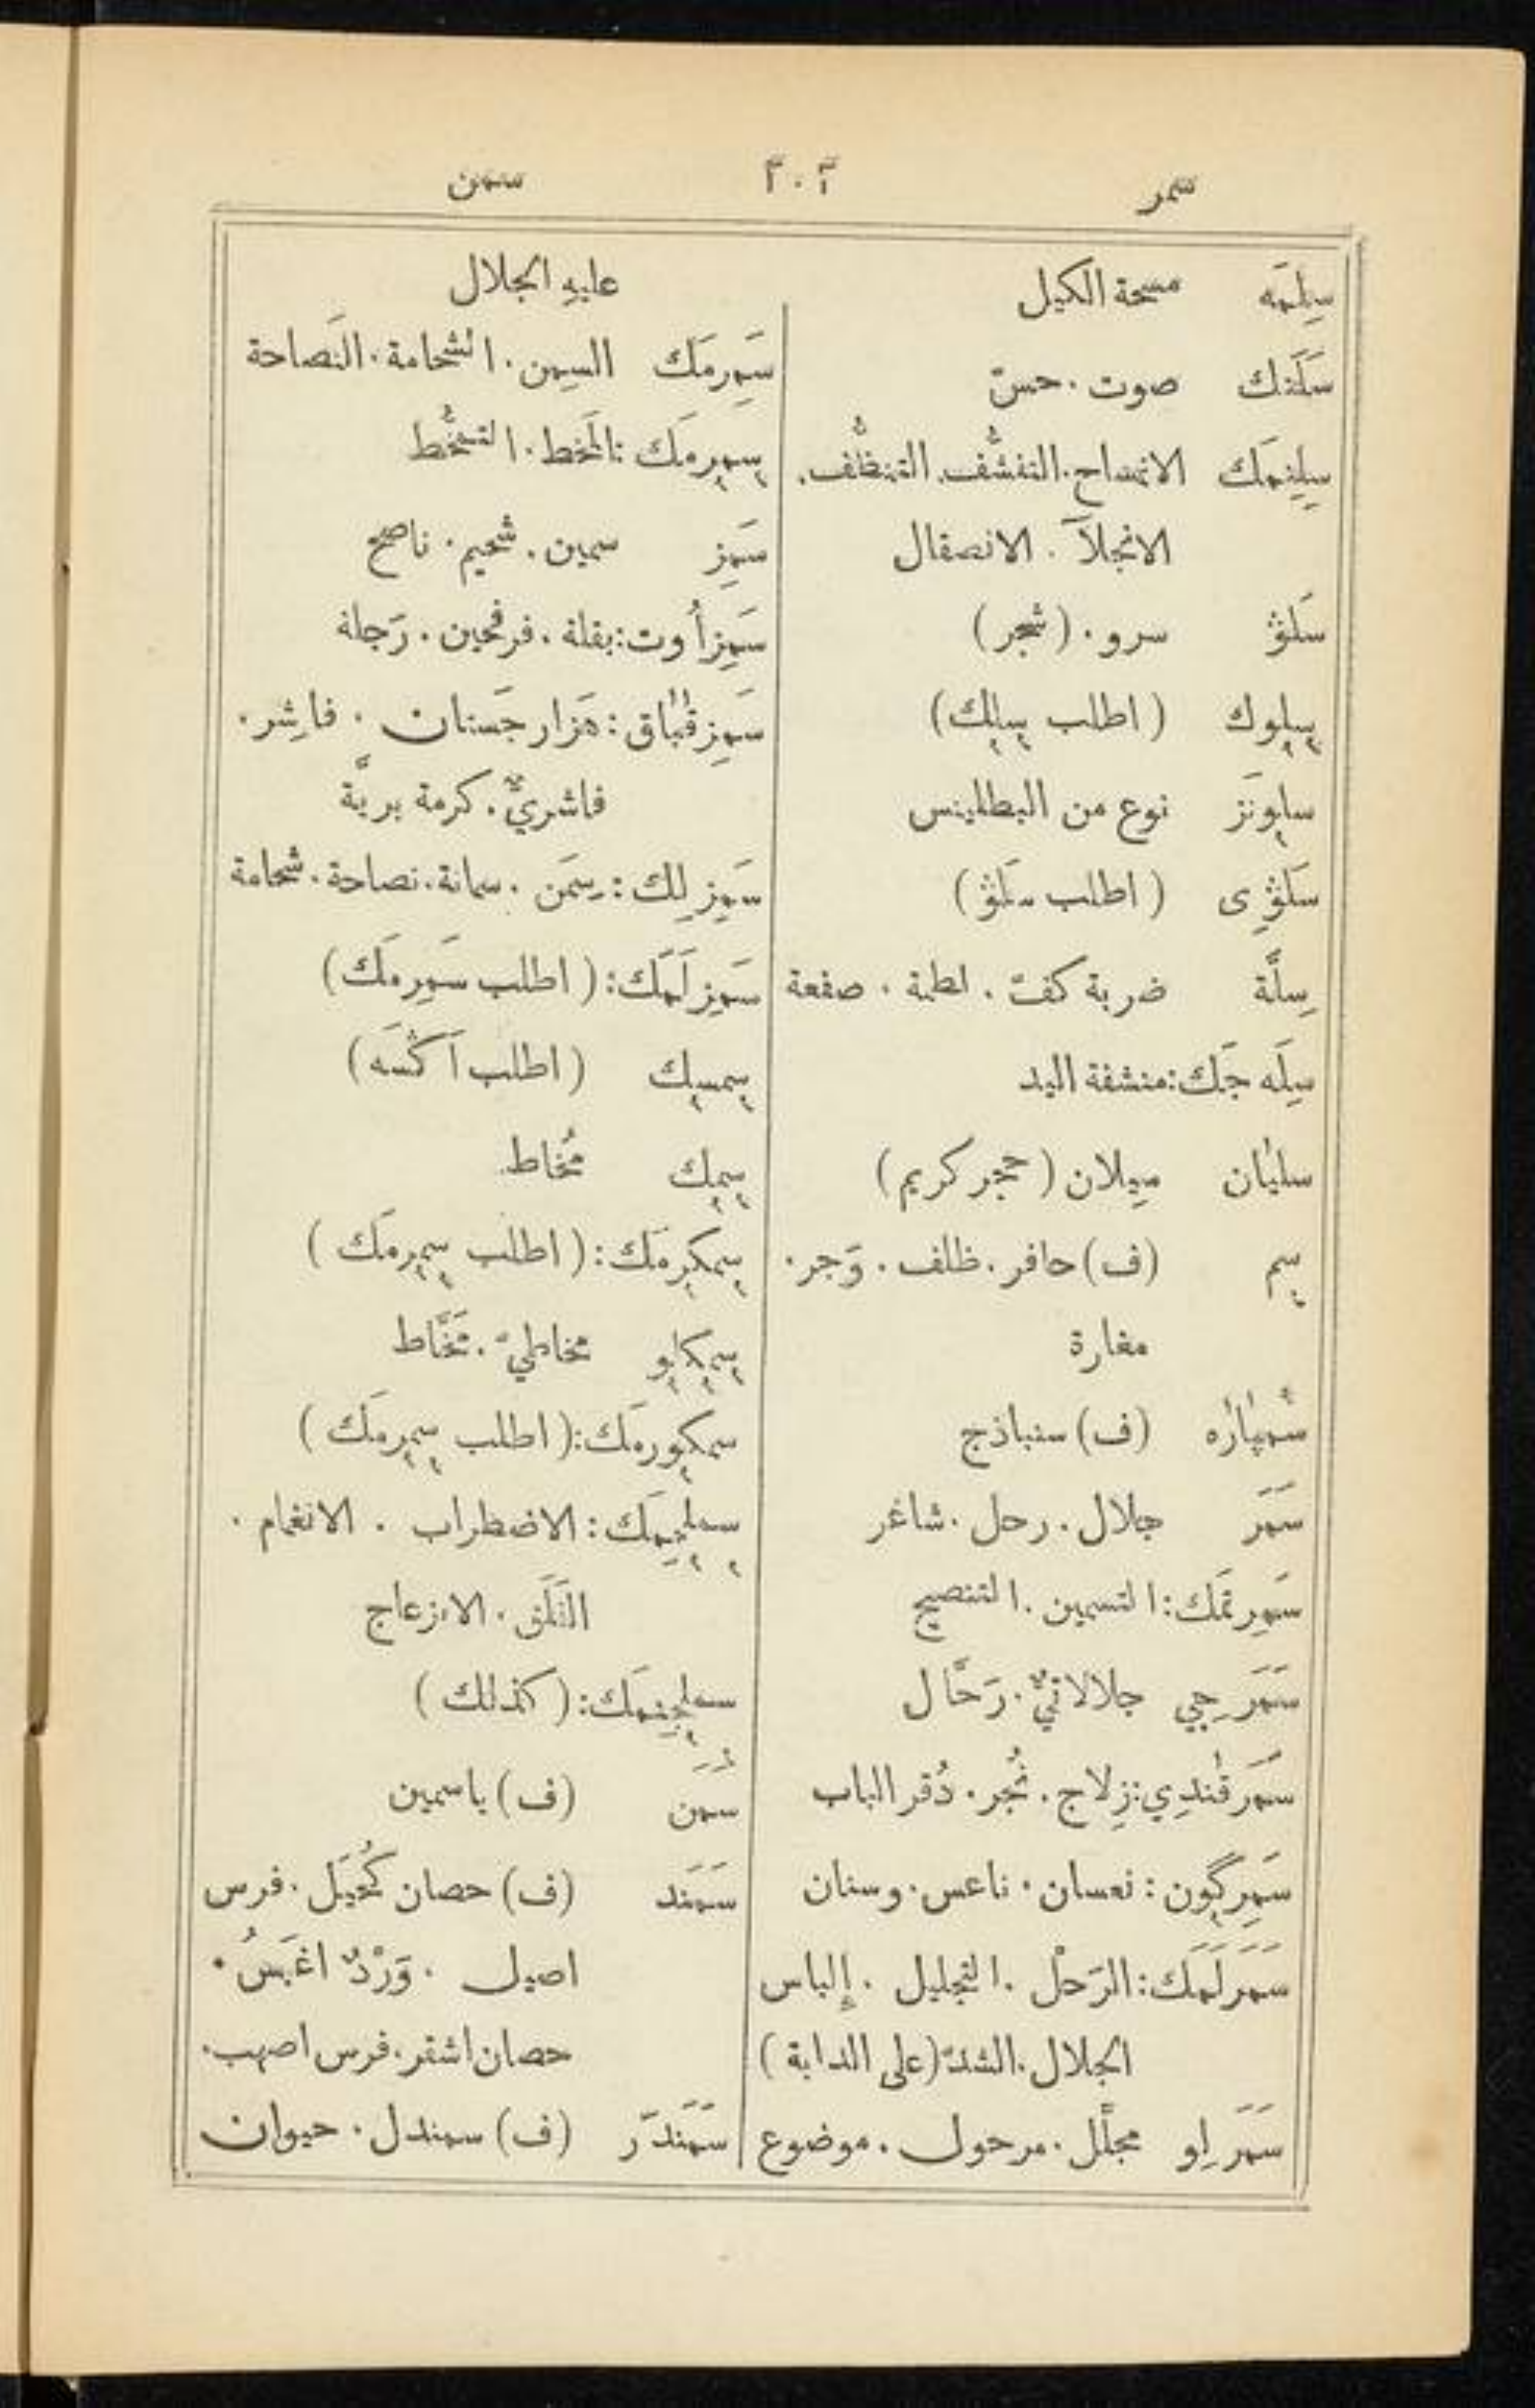 سمر ٣٠٢ سمن
سِلمَه مسحة الكيل
سَلَنك صوت. حسّ
سِلِنمَك الانمساح. التفشُّف. التنظُّف.
الانجلآ. الانصقال
سَلڤ سرو. (شجر)
سِلوك (اطلب سِلِك)
سلونَز نوع من البطلينس
سَلڤِى (اطلب سَلڤ)
سِلَّة ضربة كفّ. لطمة. صفعة
سِلَه جَك: منشفة اليد
سليان سيلان (حجر كريم)
سِم (ف) حافر. ظلف. وَجر.
مغارة
سُمپاره (ف) سنباذج
سَمَر جلال. رحل. شاغر
سَمِرتمَك: التسمين. التنصيح
سَمَرجِي جلالاتيٌّ. رَحَّال
سَمَرقندِي: زِلاج. نُجر. دُقر الباب
سَمِرگون: نعسان. ناعس. وسنان
سَمَرلَمَك: الرَحْل. التجليل. إِلباس
الجلال. الشدّ (على الدابة)
سَمَرلِو مجلَّل. مرحول. موضوع
عليهِ الجلال
سَمِرمَك السِمن. الشحامة. النَصاحة
سِمِرمَك: المَخط. التمخُّط
سَمِز سمين. شحيم. ناصح
سَمِز أُوت: بقلة. فرفحين. رَجلة
سَمِز قباق: هَزار جَسنان. فاشِر.
فاشريٌّ. كرمة بريَّة
سَمِزلِك: سِمَن. سمانة. نصاحة. شحامة
سَمِزلَمَك: (اطلب سَمِرمَك)
سِمسِك (اطلب آكسَه)
سِمِك مُخاط
سِمكِرمَك: (اطلب سِمِرمَك)
سِمِكلو مخاطيّ. مَخَّاط
سمكورمَك: (اطلب سِمِرمَك)
سِملِجِمَك: الاضطراب. الانغمام.
القَلَق. الانزعاج
سملِجِنمَك: (كذلك)
سَمَن (ف) ياسمين
سَمَند (ف) حصان كُحَيَل. فرس
اصيل. وَرْدٌ اغبَسُ.
حصان اشقر. فرس اصهب.
سَمَندَر (ف) سمندل. حيوان